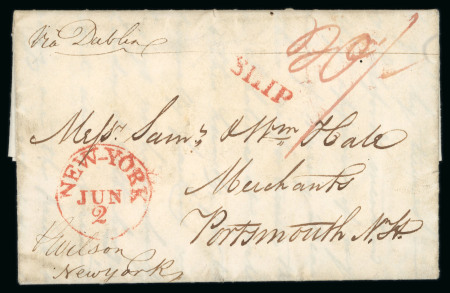 via Dublin
20/-
SLIP
Messrs. Saml. & Wm Hale
Merchants
Portsmouth N.H.
NEW-YORK
JUN
2
Wilson
Newyork